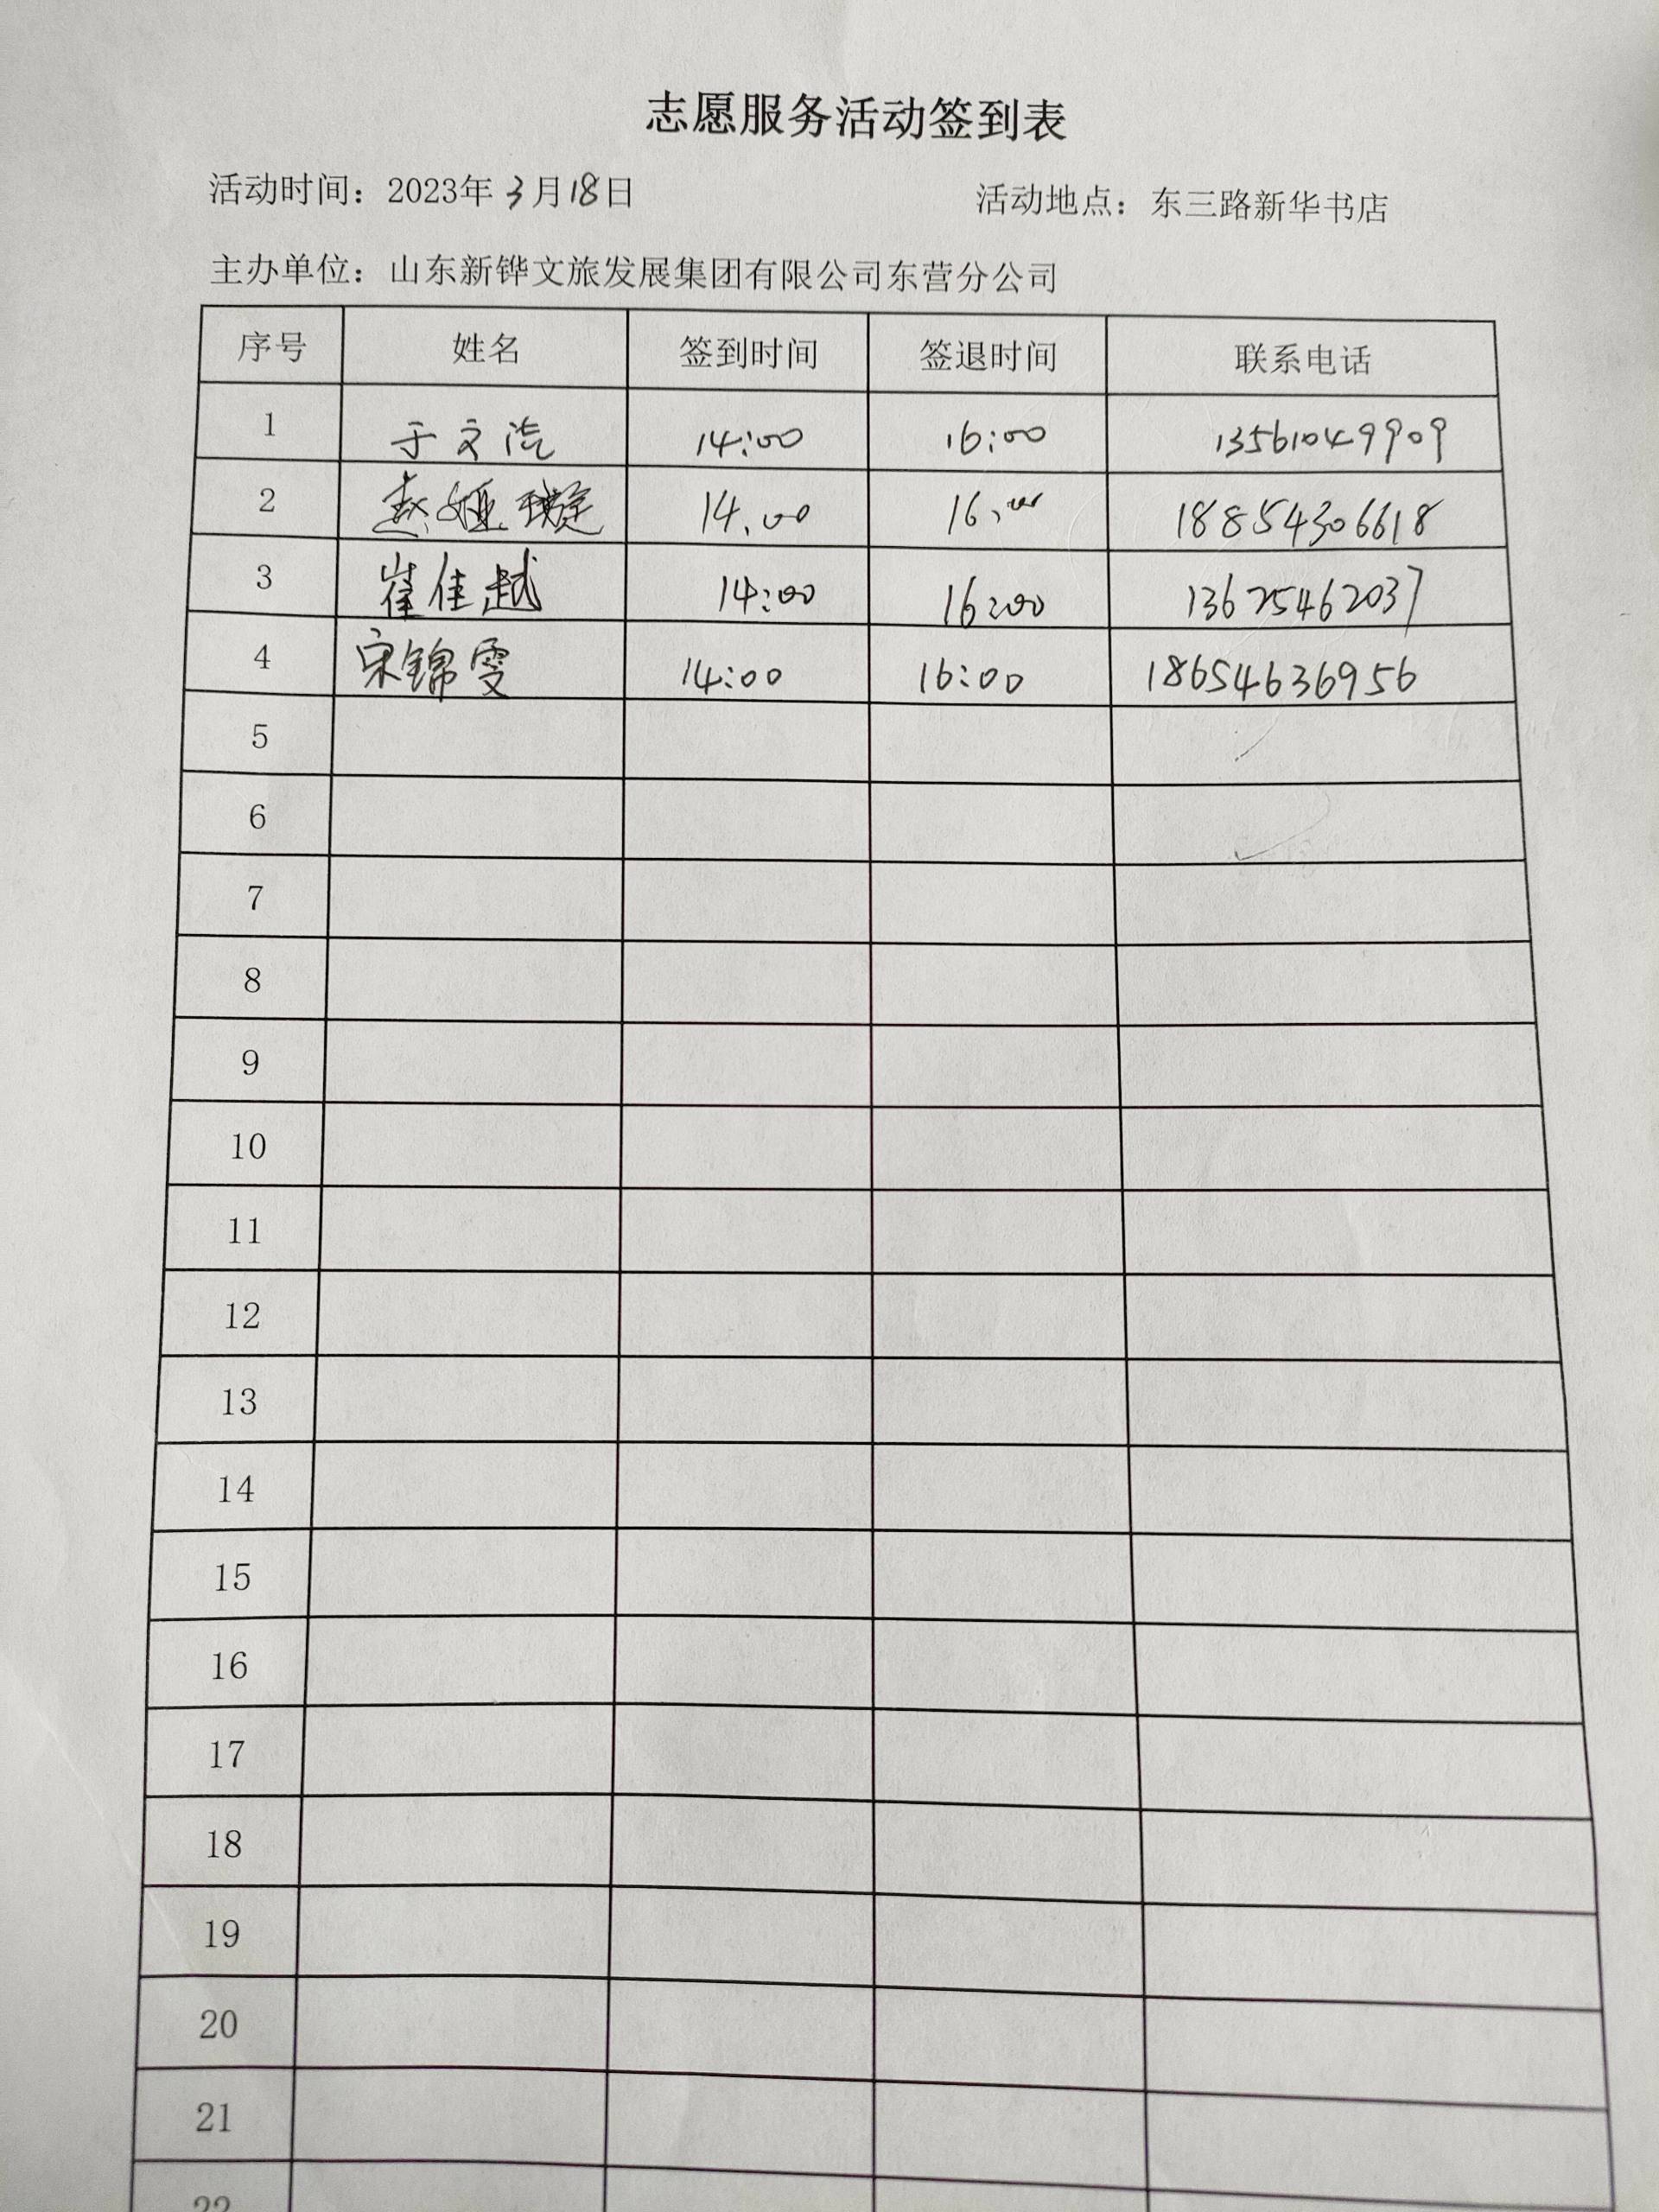 志愿服务活动签到表
活动时间：2023年 3月18日 活动地点：东三路新华书店
主办单位：山东新铧文旅发展集团有限公司东营分公司
序号 姓名 签到时间 签退时间 联系电话
1 于文汽 14:00 16:00 13561049909
2 赵娅璇 14.00 16:00 18854306618
3 崔佳越 14:00 16:00 13625462037
4 宋锦雯 14:00 16:00 18654636956
5
6
7
8
9
10
11
12
13
14
15
16
17
18
19
20
21
22